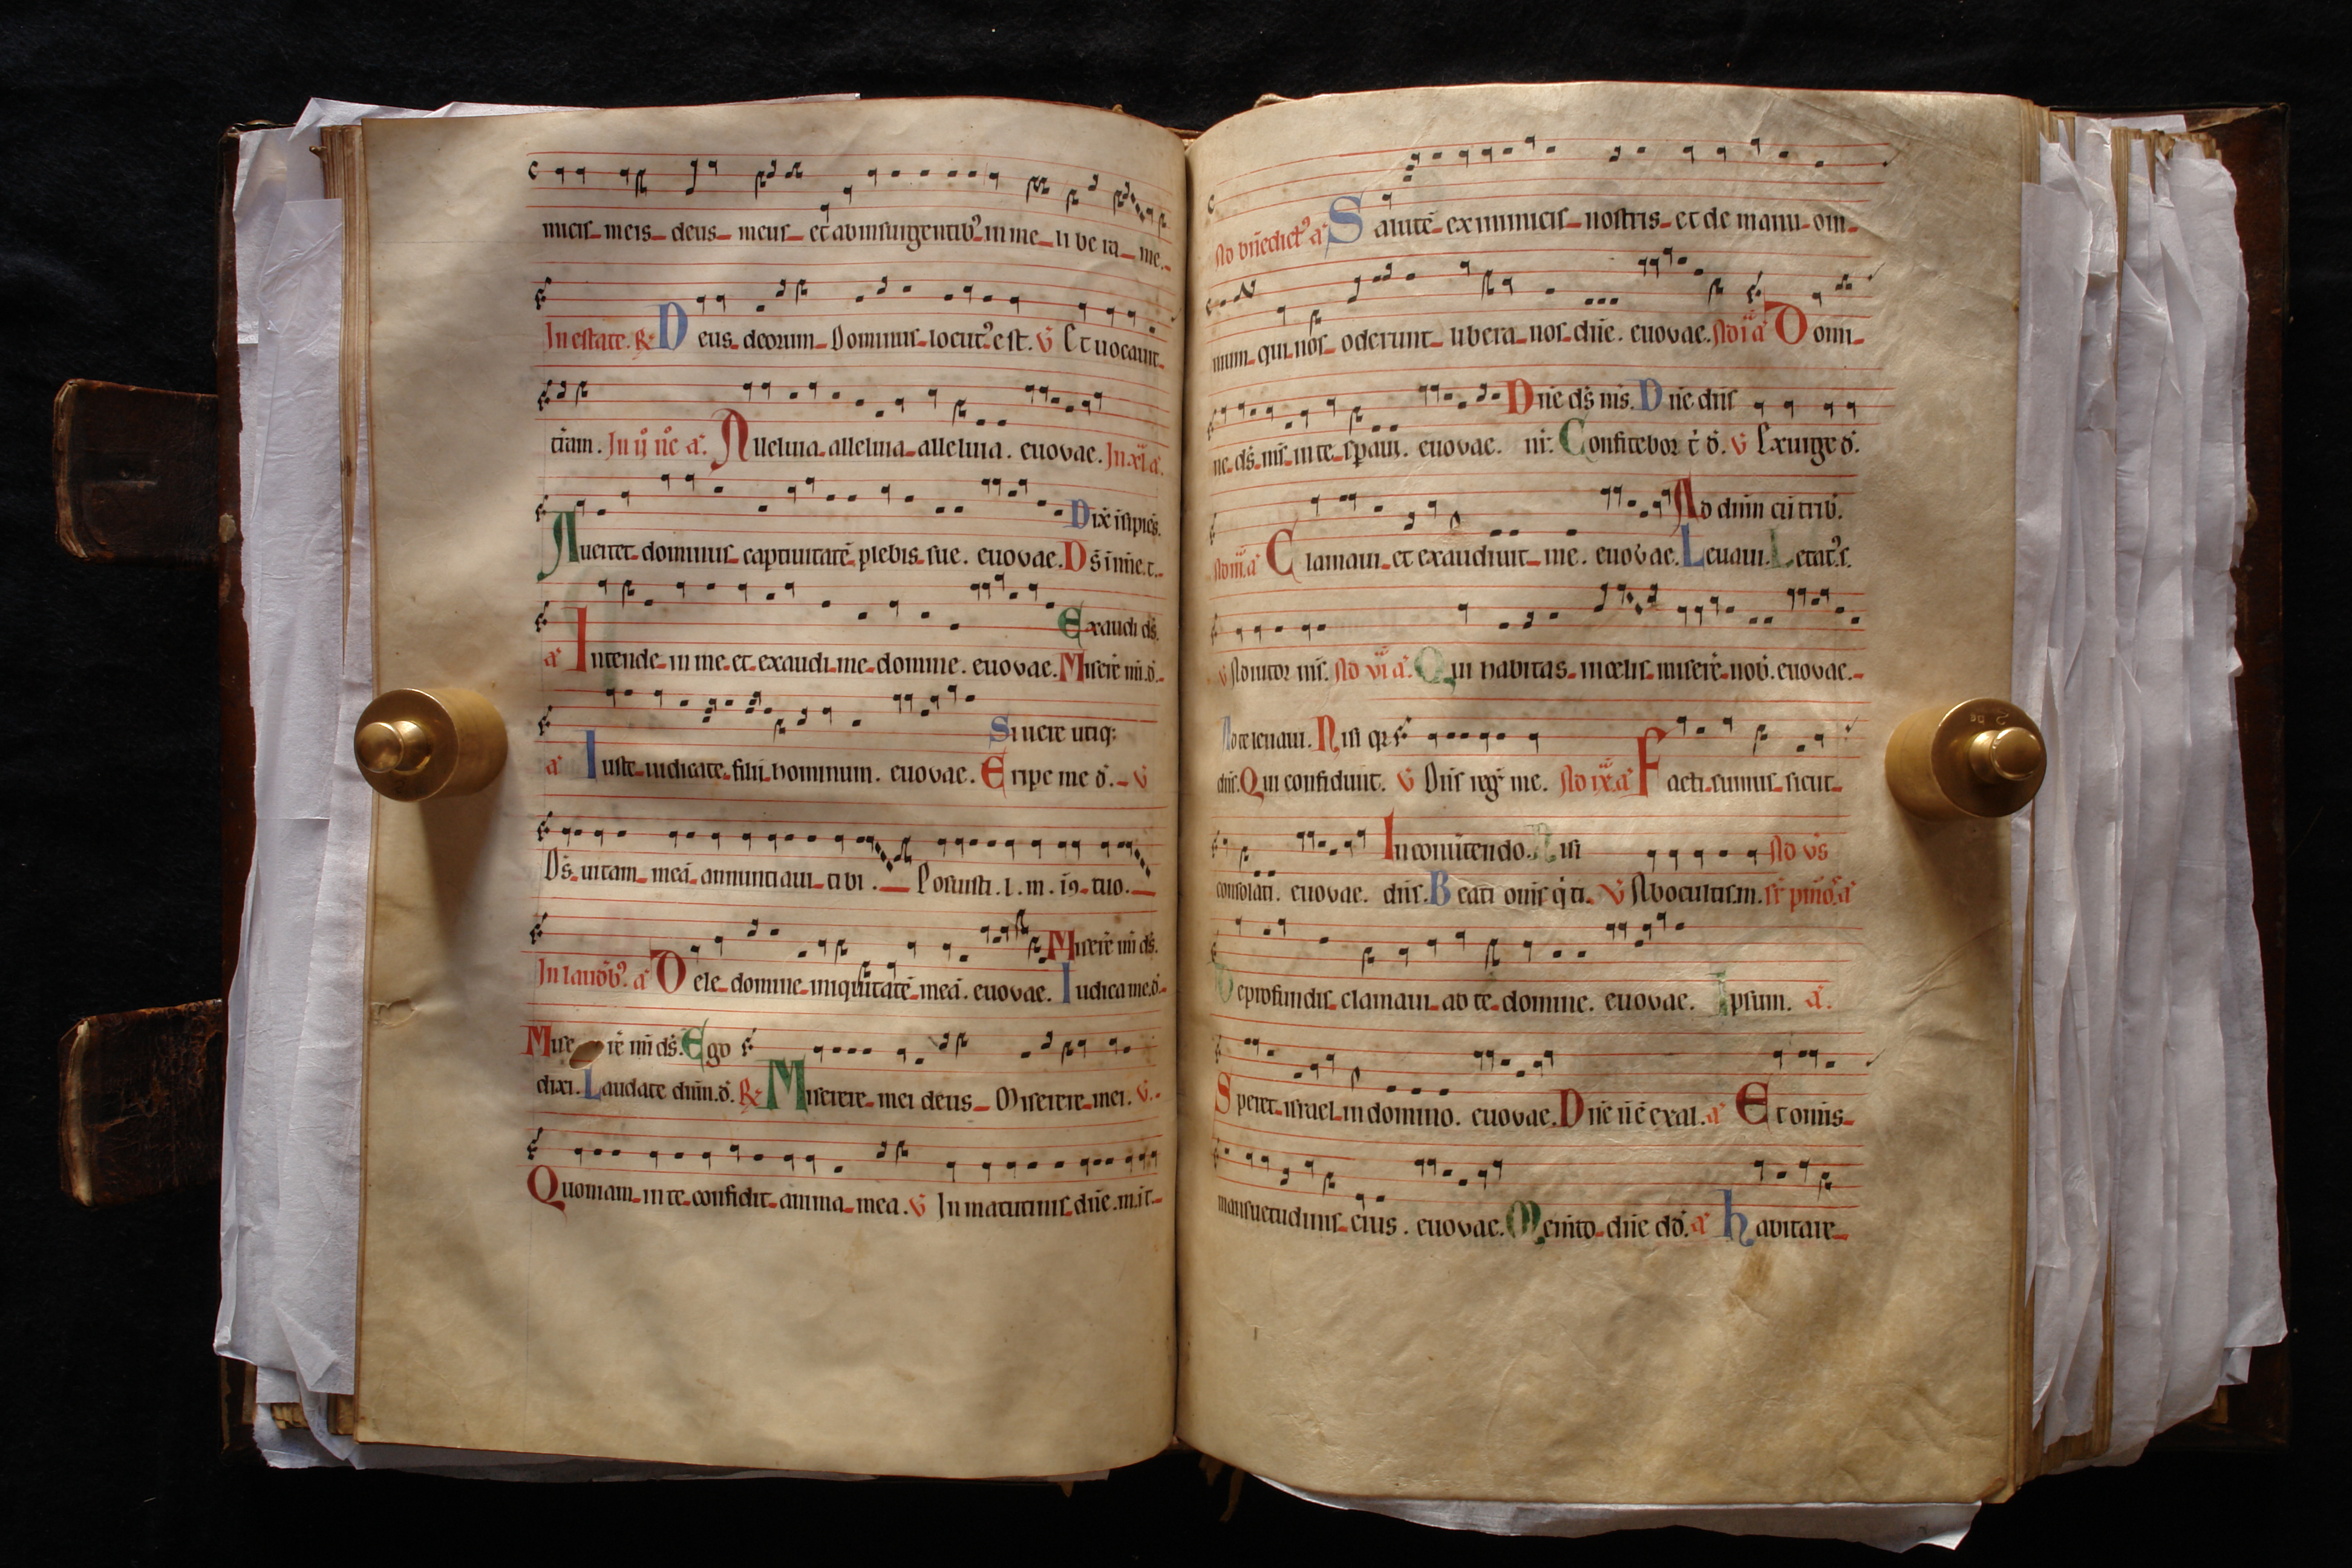 micis meis deus meus et ab insurgentib' in me libera me.
In estate. R Deus deorum Dominus locut' est. V Et uocauit
tr̄am. In ij n̄c a. Alleluia alleluia alleluia. euouae. In xl a.
Dix̄ insipiēs.
Auertet dominus captiuitatē plebis sue. euouae. Ds̄ in n̄ie. t.
Exaudi ds̄.
a Intende in me et exaudi me domine. euouae. Miserē mi. d.
Si uere utiq:
a Iuste iudicate filij hominum. euouae. Eripe me d. V
Ds̄ uitam meā annuntiaui tibi. Posuisti. l. m. in tuo.
Miserē mi ds̄.
In laudib' a Dele domine iniquitatē meā. euouae. Iudica me. d.
Miserē mi ds̄. Ego
dixi. Laudate dn̄m. d. R Miserere mei deus Miserere mei. V.
Quoniam in te confidit anima mea. V In matutinis dn̄e. m. i t.
Ad bn̄edict' a Salutē ex inimicis nostris et de manu om
nium qui nos oderunt libera nos dn̄e. euouae. Ad i a Domi
Dn̄e ds̄ ms̄. Dn̄e dn̄s
ne ds̄ ms̄ in te spaui. euouae. nr̄. Confitebor t̄ d. V Exurge d.
Ad dn̄m cū trib.
Ad iii a Clamaui et exaudiuit me. euouae. Leuaui. Letat' s.
V Adiutor ms̄. Ad vi a. Qui habitas in celis miserē nob. euouae.
Ad te leuaui. Nisi qr
dn̄s. Qui confidunt. V Dn̄s reg' me. Ad ix a Facti sumus sicut
In conūtendo. Nisi Ad vs̄
consolati. euouae. dn̄s. Beati om̄s q ti. V Ab ocultis. m. sr̄ pm̄o. a
De profundis clamaui ad te domine. euouae. Ipsum. a.
Speret israel in domino. euouae. Dn̄e n̄e exal. a Et om̄is
mansuetudinis eius. euouae. Mem̄to dn̄e dd. a habitare